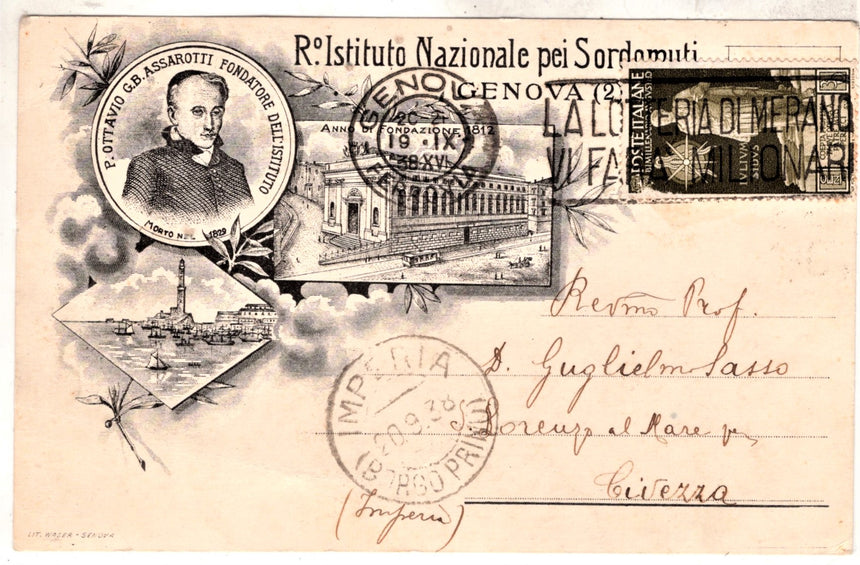 Rº. Istituto Nazionale pei Sordomuti
GENOVA (2)
P. OTTAVIO G.B. ASSAROTTI FONDATORE DELL'ISTITUTO
MORTO NEL 1829
ANNO DI FONDAZIONE 1812
GENOVA
19 · IX
38·XVI
FERROVIA
LA LOTTERIA DI MERANO
VI FARÀ MILIONARI
POSTE ITALIANE
IVLIVS
Rev̅mo Prof.
D. Guglielmo Sasso
S. Lorenzo al Mare
Civezza
(Imperia)
IMPERIA
20.9.38
(BORGO PRINO)
LIT. WAGER - GENOVA